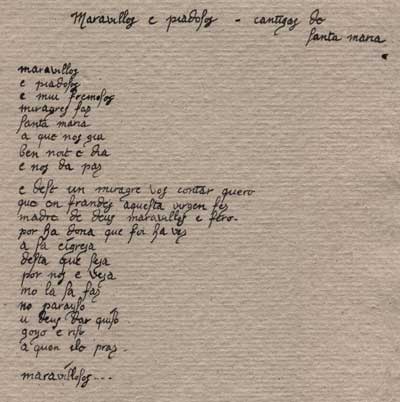 Maravillos e piadosos - cantigas de
santa maria
maravillos
e piadosos
e mui fremosos
miragres faz
santa maria
a que nos guia
ben noit e dia
e nos da pas
e dest un miragre vos contar quero
que en frandes aquesta virgen fes
madre de deus maravillos e fero
por ha dona que foi ha ves
a sa eigreja
desta que seja
por nos e veja
mo la sa fas
no parayso
u deus dar quiso
goyo e riso
a quen lle pras.
maravillosos...